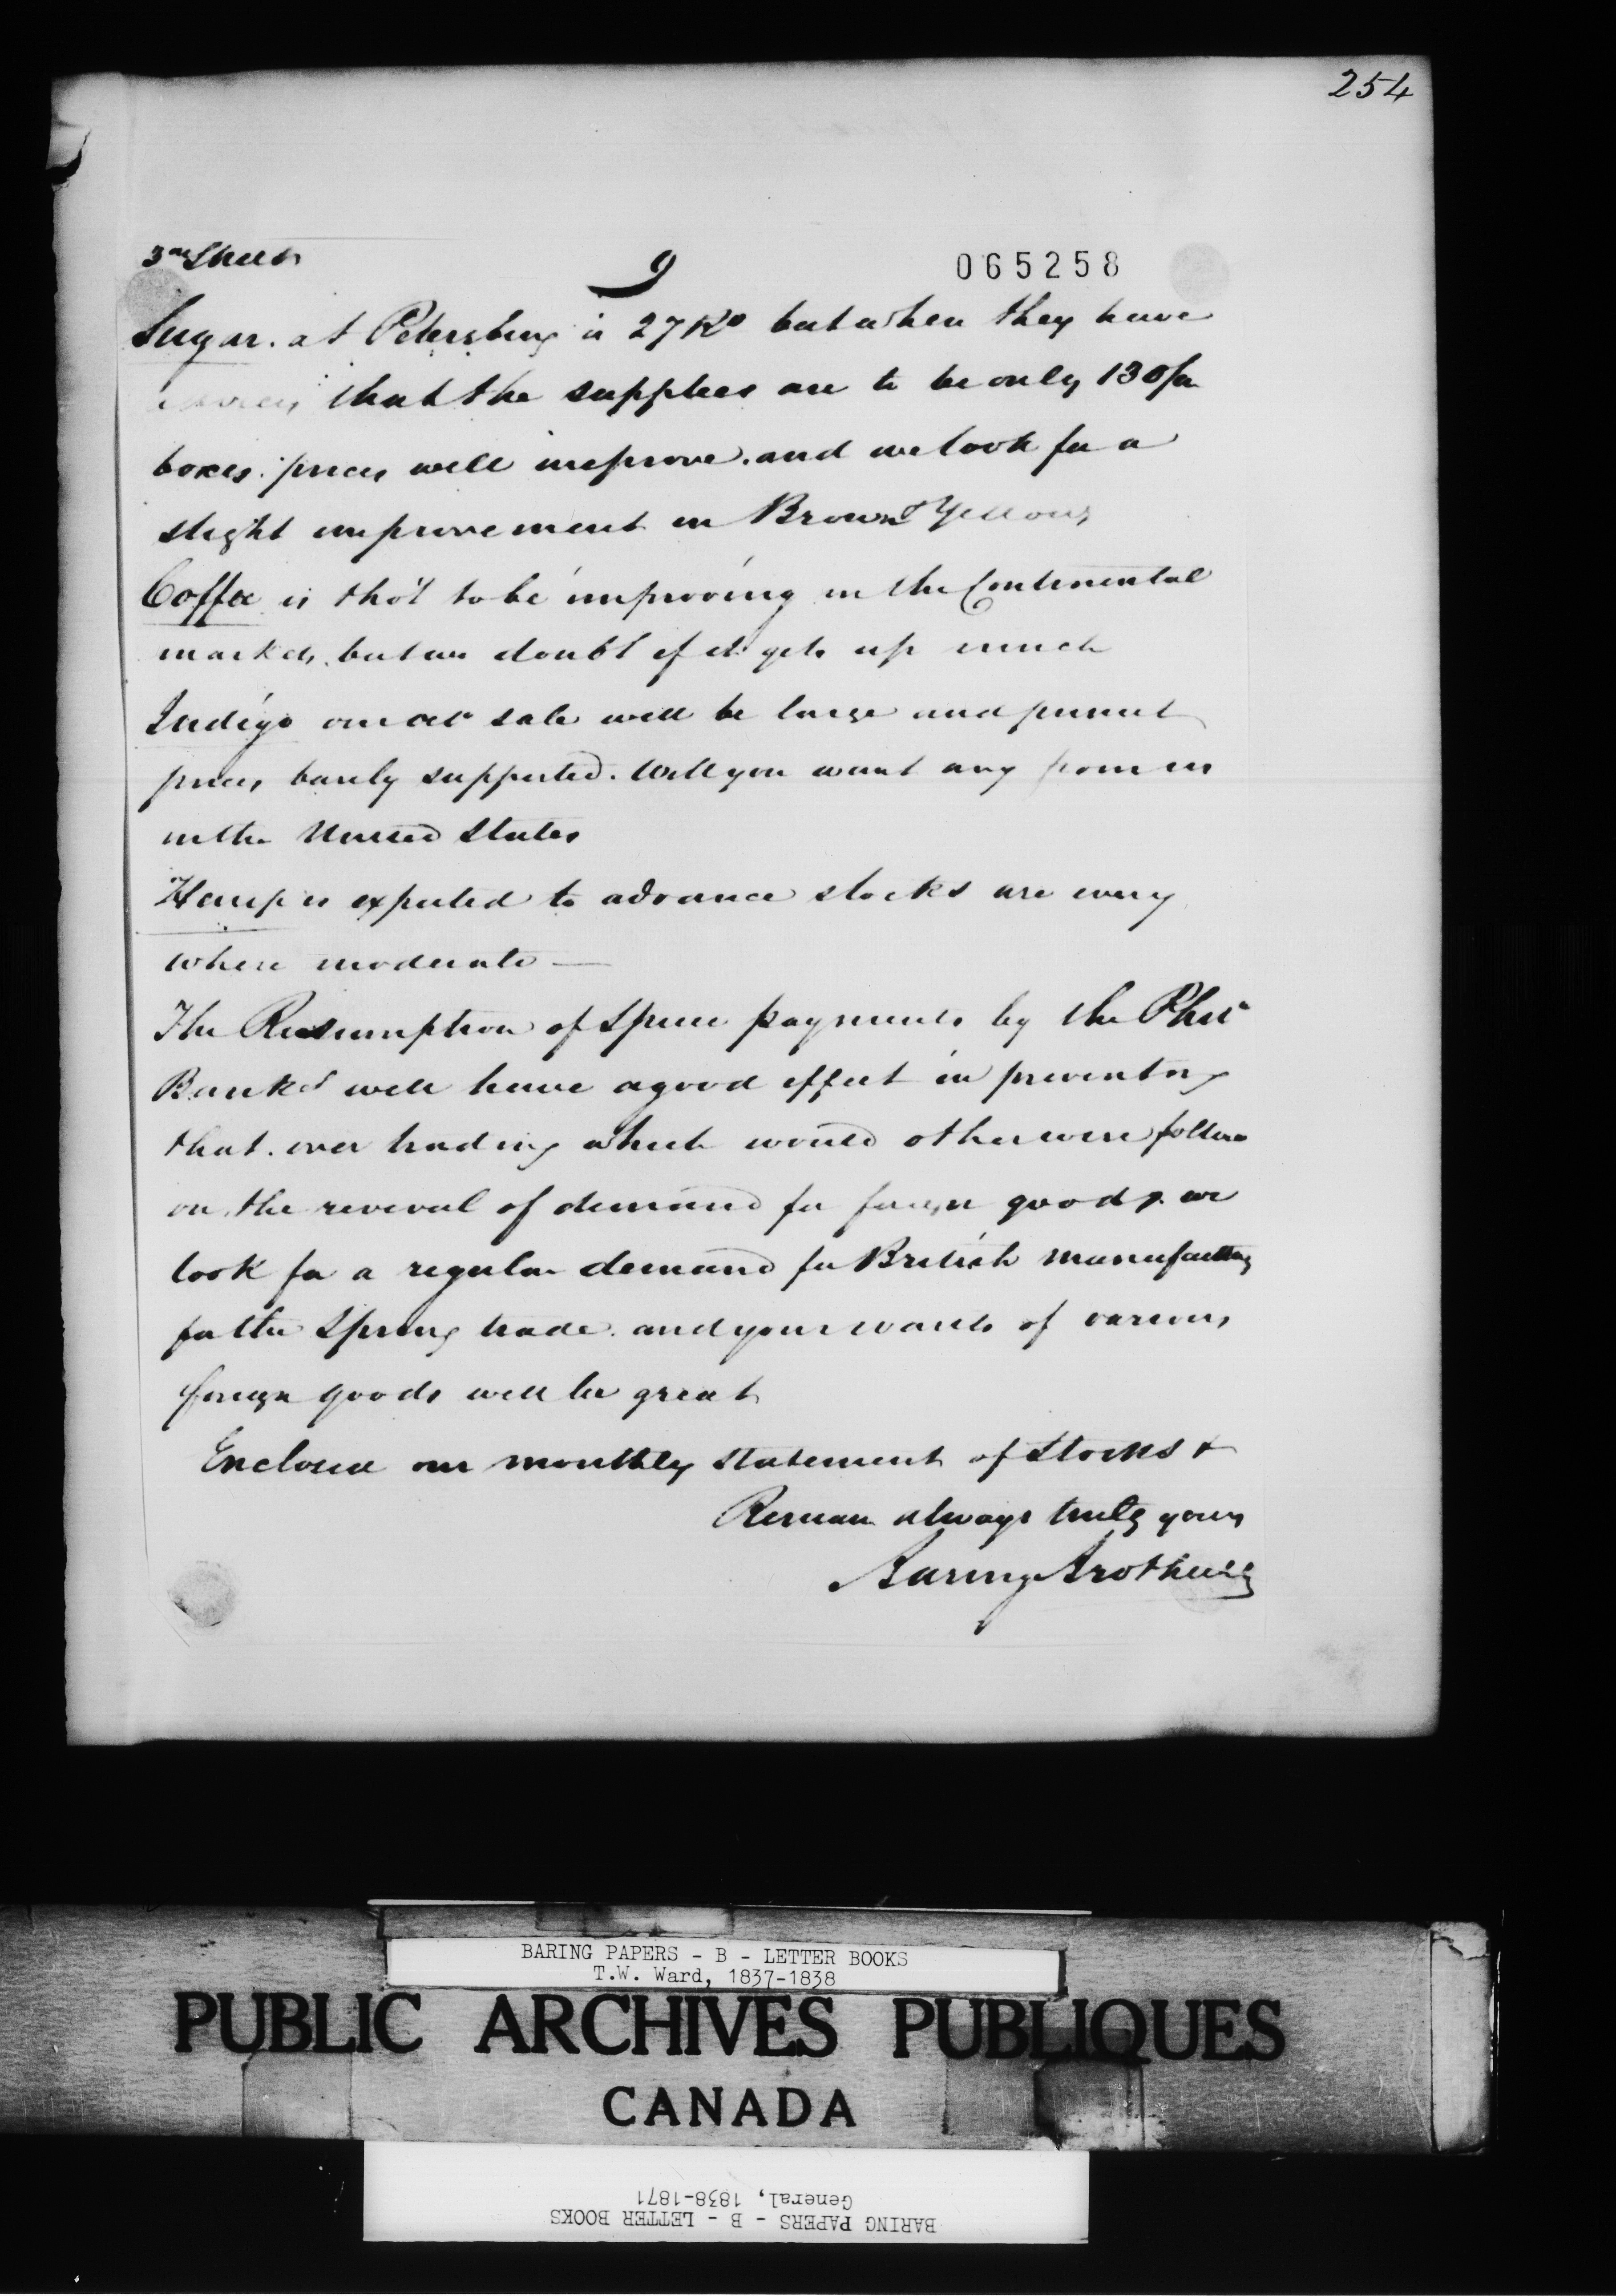 254
3rd Sheet
9
065258
Sugar. at Petersburg is 27 Ro but when they have
that the supplies are to be only 130/m
boxes. prices will improve. and we look for a
slight improvement in Brown & Yellows
Coffee is tho't to be improving in the Continental
markets, but we doubt if it gets up much
Indigo our Octr sale will be large and present
prices barely supported. Will you want any from us
in the United States
Hemp is expected to advance stocks are every
where moderate —
The Resumption of Specie payments by the Phila
Banks will have a good effect in preventing
that over trading which would otherwise follow
on the revival of demand for foreign goods. we
look for a regular demand for British manufactures
for the Spring trade. and your wants of various
foreign goods will be great
Enclosed our monthly statement of Stocks &
Remain always truly yours
Baring Brothers &
BARING PAPERS - B - LETTER BOOKS
T.W. Ward, 1837-1838
PUBLIC ARCHIVES PUBLIQUES
CANADA
BARING PAPERS - B - LETTER BOOKS
General, 1838-1871